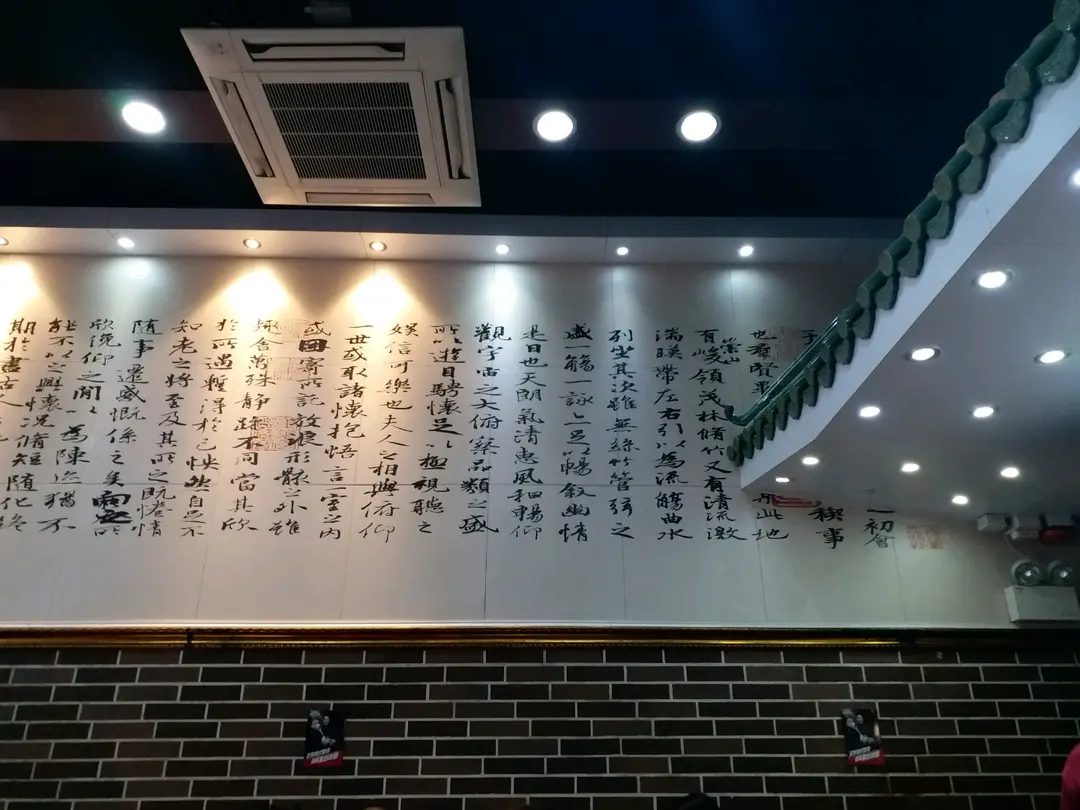 初會
稧事
也羣賢畢
此地
有崇山峻領茂林脩竹又有清流激
湍暎帶左右引以為流觴曲水
列坐其次雖無絲竹管弦之
盛一觴一詠亦足以暢敘幽情
是日也天朗氣清惠風和暢仰
觀宇宙之大俯察品類之盛
所以遊目騁懷足以極視聽之
娛信可樂也夫人之相與俯仰
一世或取諸懷抱悟言一室之內
或因寄所託放浪形骸之外雖
趣舍萬殊靜躁不同當其欣
於所遇蹔得於己快然自足不
知老之將至及其所之既惓情
隨事遷感慨係之矣向之所
欣俛仰之閒以為陳迹猶不
能不以之興懷況脩短隨化終
期於盡古人